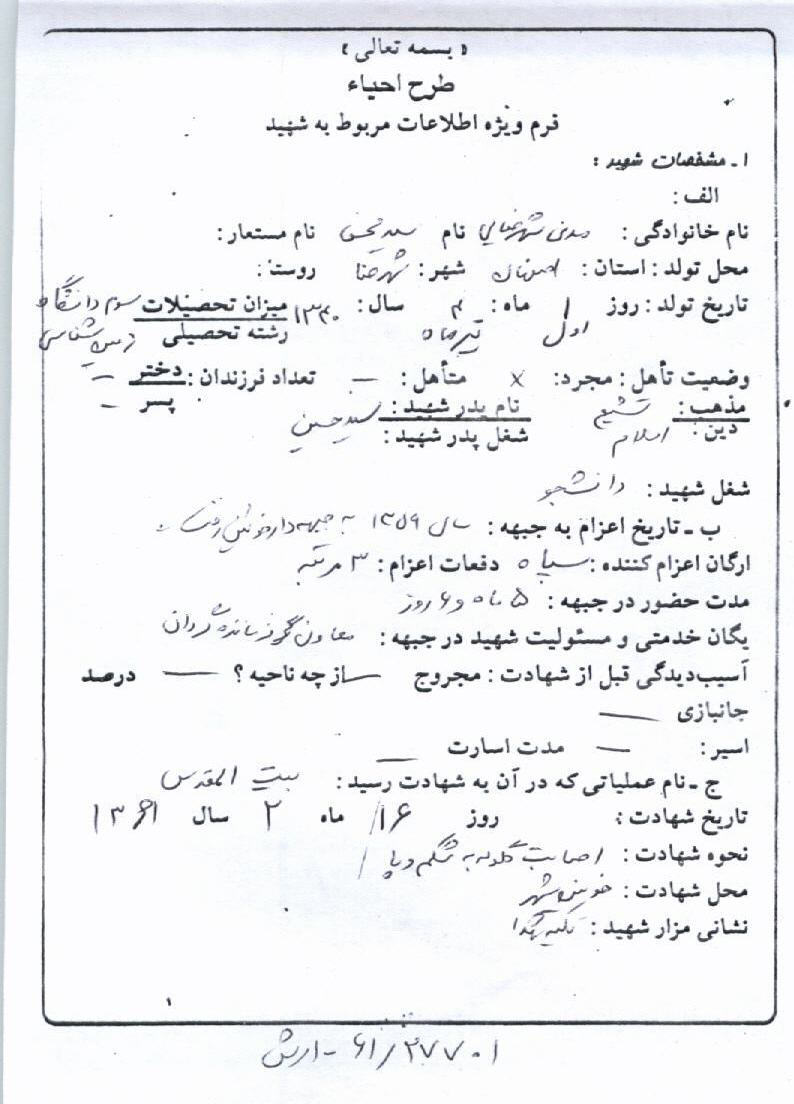 « بسمه تعالی »
طرح احیاء
فرم ویژه اطلاعات مربوط به شهید
۱ ـ مشخصات شهید :
الف :
نام خانوادگی : نام سید محسن نام مستعار :
محل تولد : استان : اصفهان شهر : روستا :
تاریخ تولد : روز ۱ ماه : ۴ سال : ۱۳۴۰ میزان تحصیلات سوم دانشگاه
اول تیرماه رشته تحصیلی زمین شناسی
وضعیت تأهل : مجرد : × متأهل : — تعداد فرزندان : دختر —
مذهب : تشیع نام پدر شهید : سید حسین پسر —
دین : اسلام شغل پدر شهید :
شغل شهید : دانشجو
ب ـ تاریخ اعزام به جبهه : سال ۱۳۵۹ به جبهه دارخوئین
ارگان اعزام کننده : سپاه دفعات اعزام : ۳ مرتبه
مدت حضور در جبهه : ۵ ماه و ۶ روز
یگان خدمتی و مسئولیت شهید در جبهه : معاون گردان
آسیب‌دیدگی قبل از شهادت : مجروح — از چه ناحیه ؟ — درصد
جانبازی —
اسیر : — مدت اسارت —
ج ـ نام عملیاتی که در آن به شهادت رسید : بیت المقدس
تاریخ شهادت : روز ۱۶ ماه ۲ سال ۱۳۶۱
نحوه شهادت : اصابت گلوله به شکم و پا
محل شهادت : خونین شهر
نشانی مزار شهید : تکیه شهدا
۱
۶۱/۲۷۷۰۱ - ارش